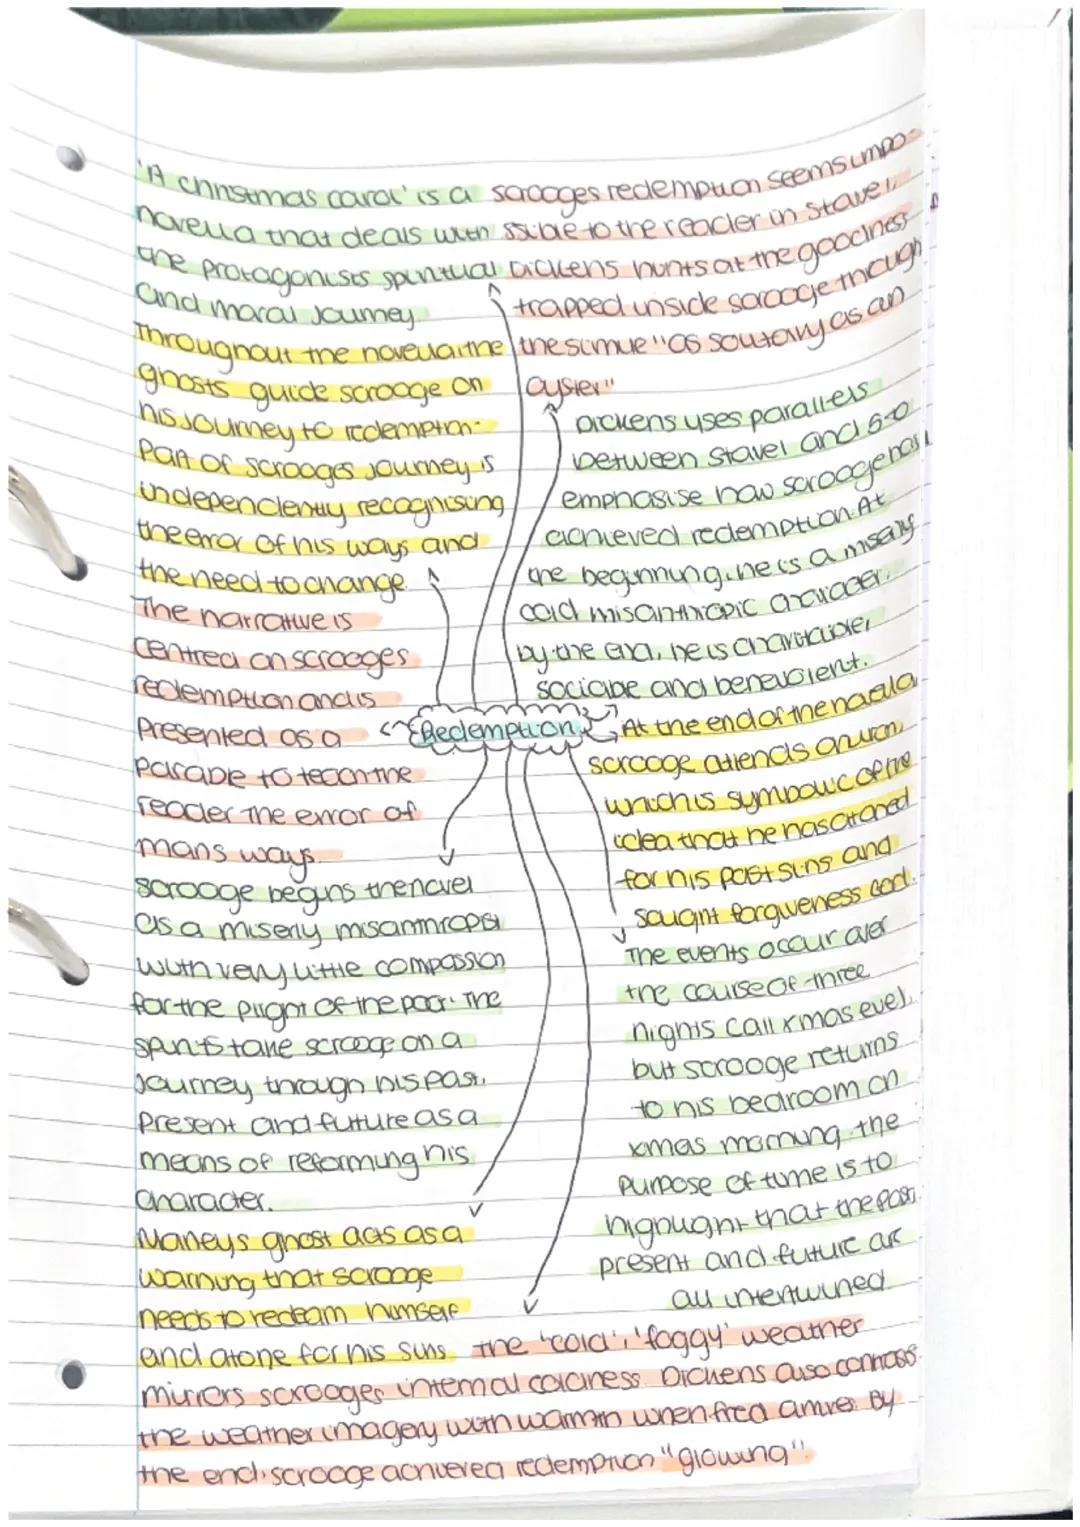 'A christmas carol' is a
novella that deals with
the protagonists spiritual
and moral journey.
Throughout the novella, the
ghosts guide scrooge on
his journey to redemption.
Part of scrooges journey is
independently recognising
the error of his ways and
the need to change.
The narrative is
centred on scrooges
redemption and is
presented as a
parable to teach the
reader the error of
mans ways.
scrooge begins the novel
as a miserly misanthropist
with very little compassion
for the plight of the poor. The
spirits take scrooge on a
journey through his past,
present and future as a
means of reforming his
character.
Marleys ghost acts as a
warning that scrooge
needs to redeem himself
and atone for his sins.
scrooges redemption seems impo-
ssible to the reader in stave 1,
Dickens hints at the goodness
trapped inside scrooge through
the simile "as solitary as an
oyster"
Dickens uses parallels
between stave 1 and 5 to
emphasise how scrooge has
achieved redemption. At
the beginning, he is a miserly
cold misanthropic character.
by the end, he is charitable,
sociable and benevolent.
Redemption
At the end of the novella
scrooge attends church,
which is symbolic of the
idea that he has atoned
for his past sins and
sought forgiveness God.
The events occur over
the course of three
nights (all xmas eve),
but scrooge returns
to his bedroom on
xmas morning. the
purpose of time is to
highlight that the past,
present and future are
all intertwined.
The 'cold', 'foggy' weather
mirrors scrooges internal coldness. Dickens also contrasts
the weather imagery with warmth when fred arrives. By
the end, scrooge achieved redemption "glowing".